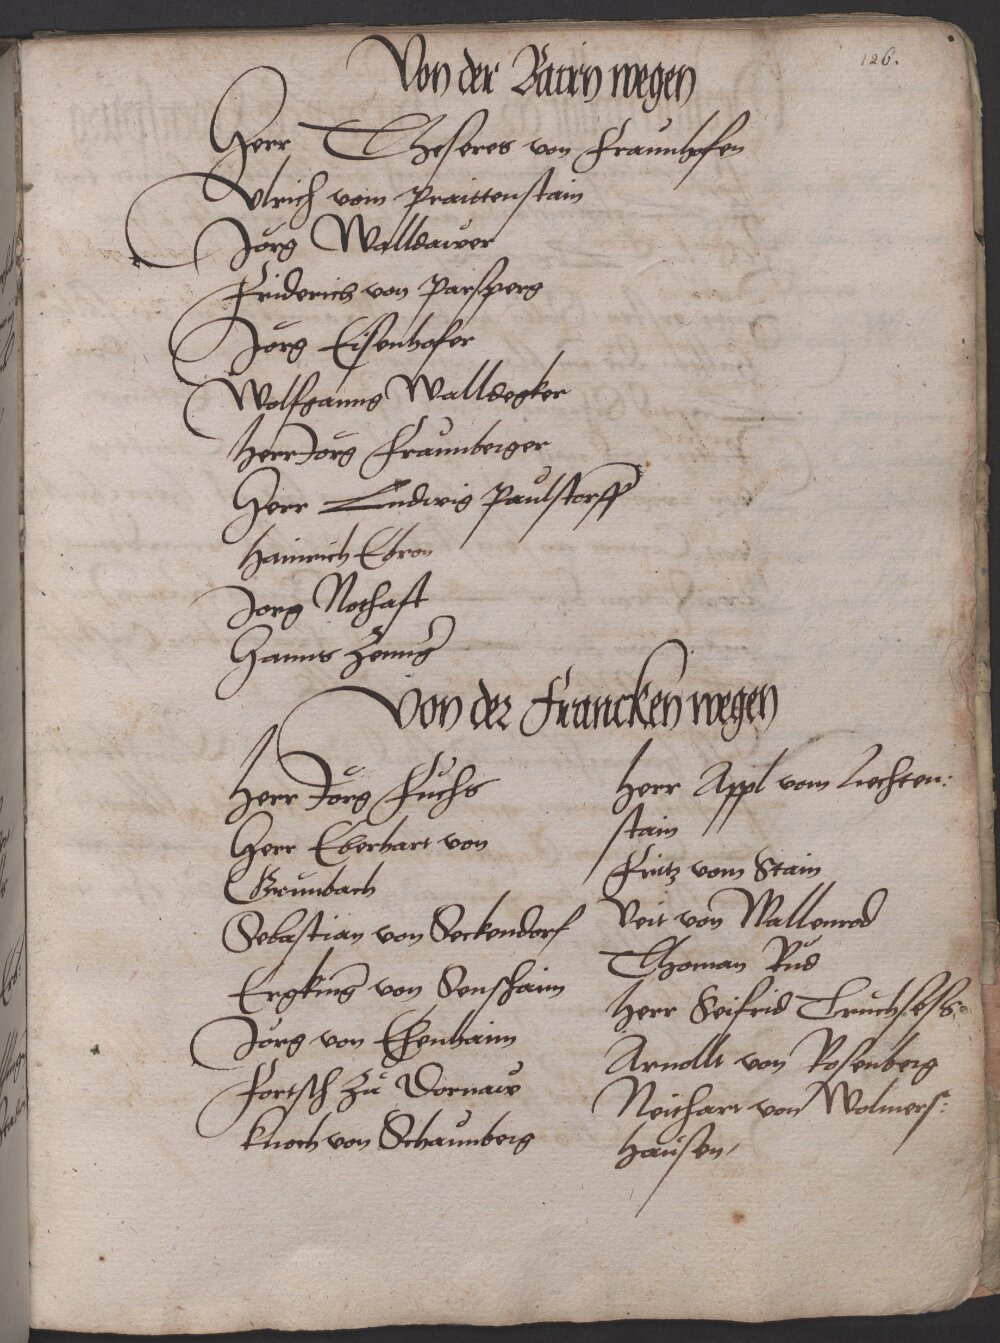 126.
Von der Bairn wegen
Herr Theseres von Fraunhofen
Ulrich vom Praittenstain
Jörg Walldawer
Friderich von Parsperg
Jörg Eisenhofer
Wolfganng Walldegker
Herr Jörg Fraunberger
Herr Ludwig Paulstorff
Hainrich Ebron
Jorg Nothafft
Hanns Zenng
Von der Francken wegen
Herr Jörg Fuchs
Herr Eberhart von
Grunbach
Sebastian von Seckendorf
Ergking von Senshaim
Jörg von Ehenhaim
Fortsch zu Dornaw
Knoch von Schaunberg
Herr Appl vom Liechten:
stain
Fritz vom Stain
Veit von Wallenrod
Thoman Rüd
Herr Seifrid Truchsess
Arnollt von Rosenberg
Neithart von Wolmers:
hausen